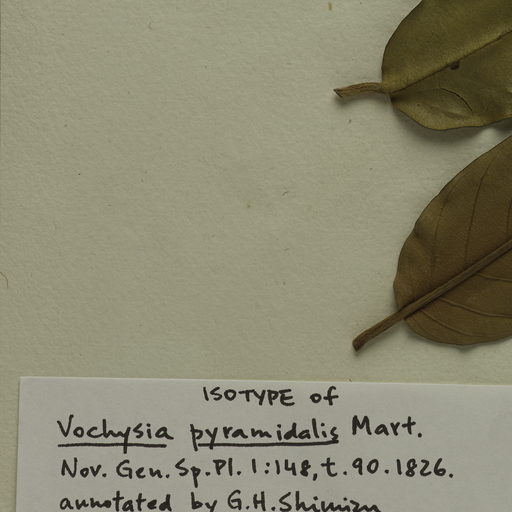 ISOTYPE of
Vochysia pyramidalis Mart.
Nov. Gen. Sp. Pl. 1:148, t. 90. 1826.
annotated by G.H. Shimizu